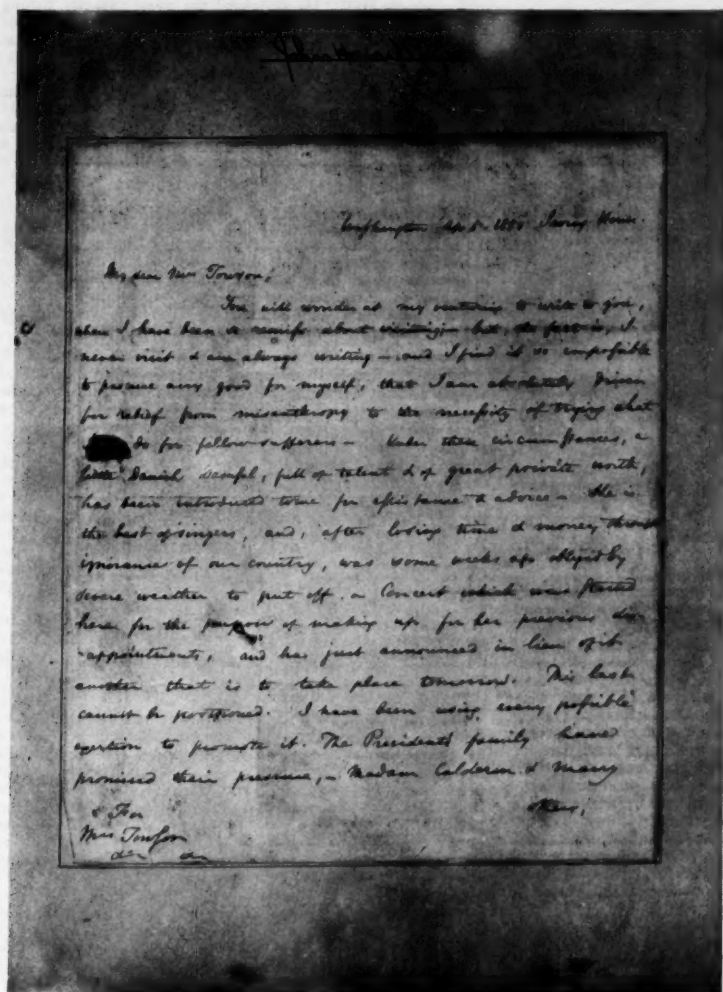 John Howard
Washington Ap. 5. 1850 Irving House.
My dear Mrs Towson,
You will wonder at my venturing to write to you,
when I have been so remiss about visiting – but, the fact is, I
never visit & am always writing – and I find it so impossible
to procure any good for myself, that I am absolutely driven
for relief from misanthropy to the necessity of trying what
do for fellow-sufferers – Under these circumstances, a
little Danish damsel, full of talent & of great private worth,
has been introduced to me for assistance & advice – She is
the best of singers, and, after losing time & money through
ignorance of our country, was some weeks ago obliged by
severe weather to put off a Concert which was started
here for the purpose of making up for her previous dis-
-appointments, and has just announced in lieu of it
another that is to take place tomorrow. This last
cannot be postponed. I have been using every possible
exertion to promote it. The President's family have
promised their presence, – Madam Calderon & many
others,
For
Mrs Towson